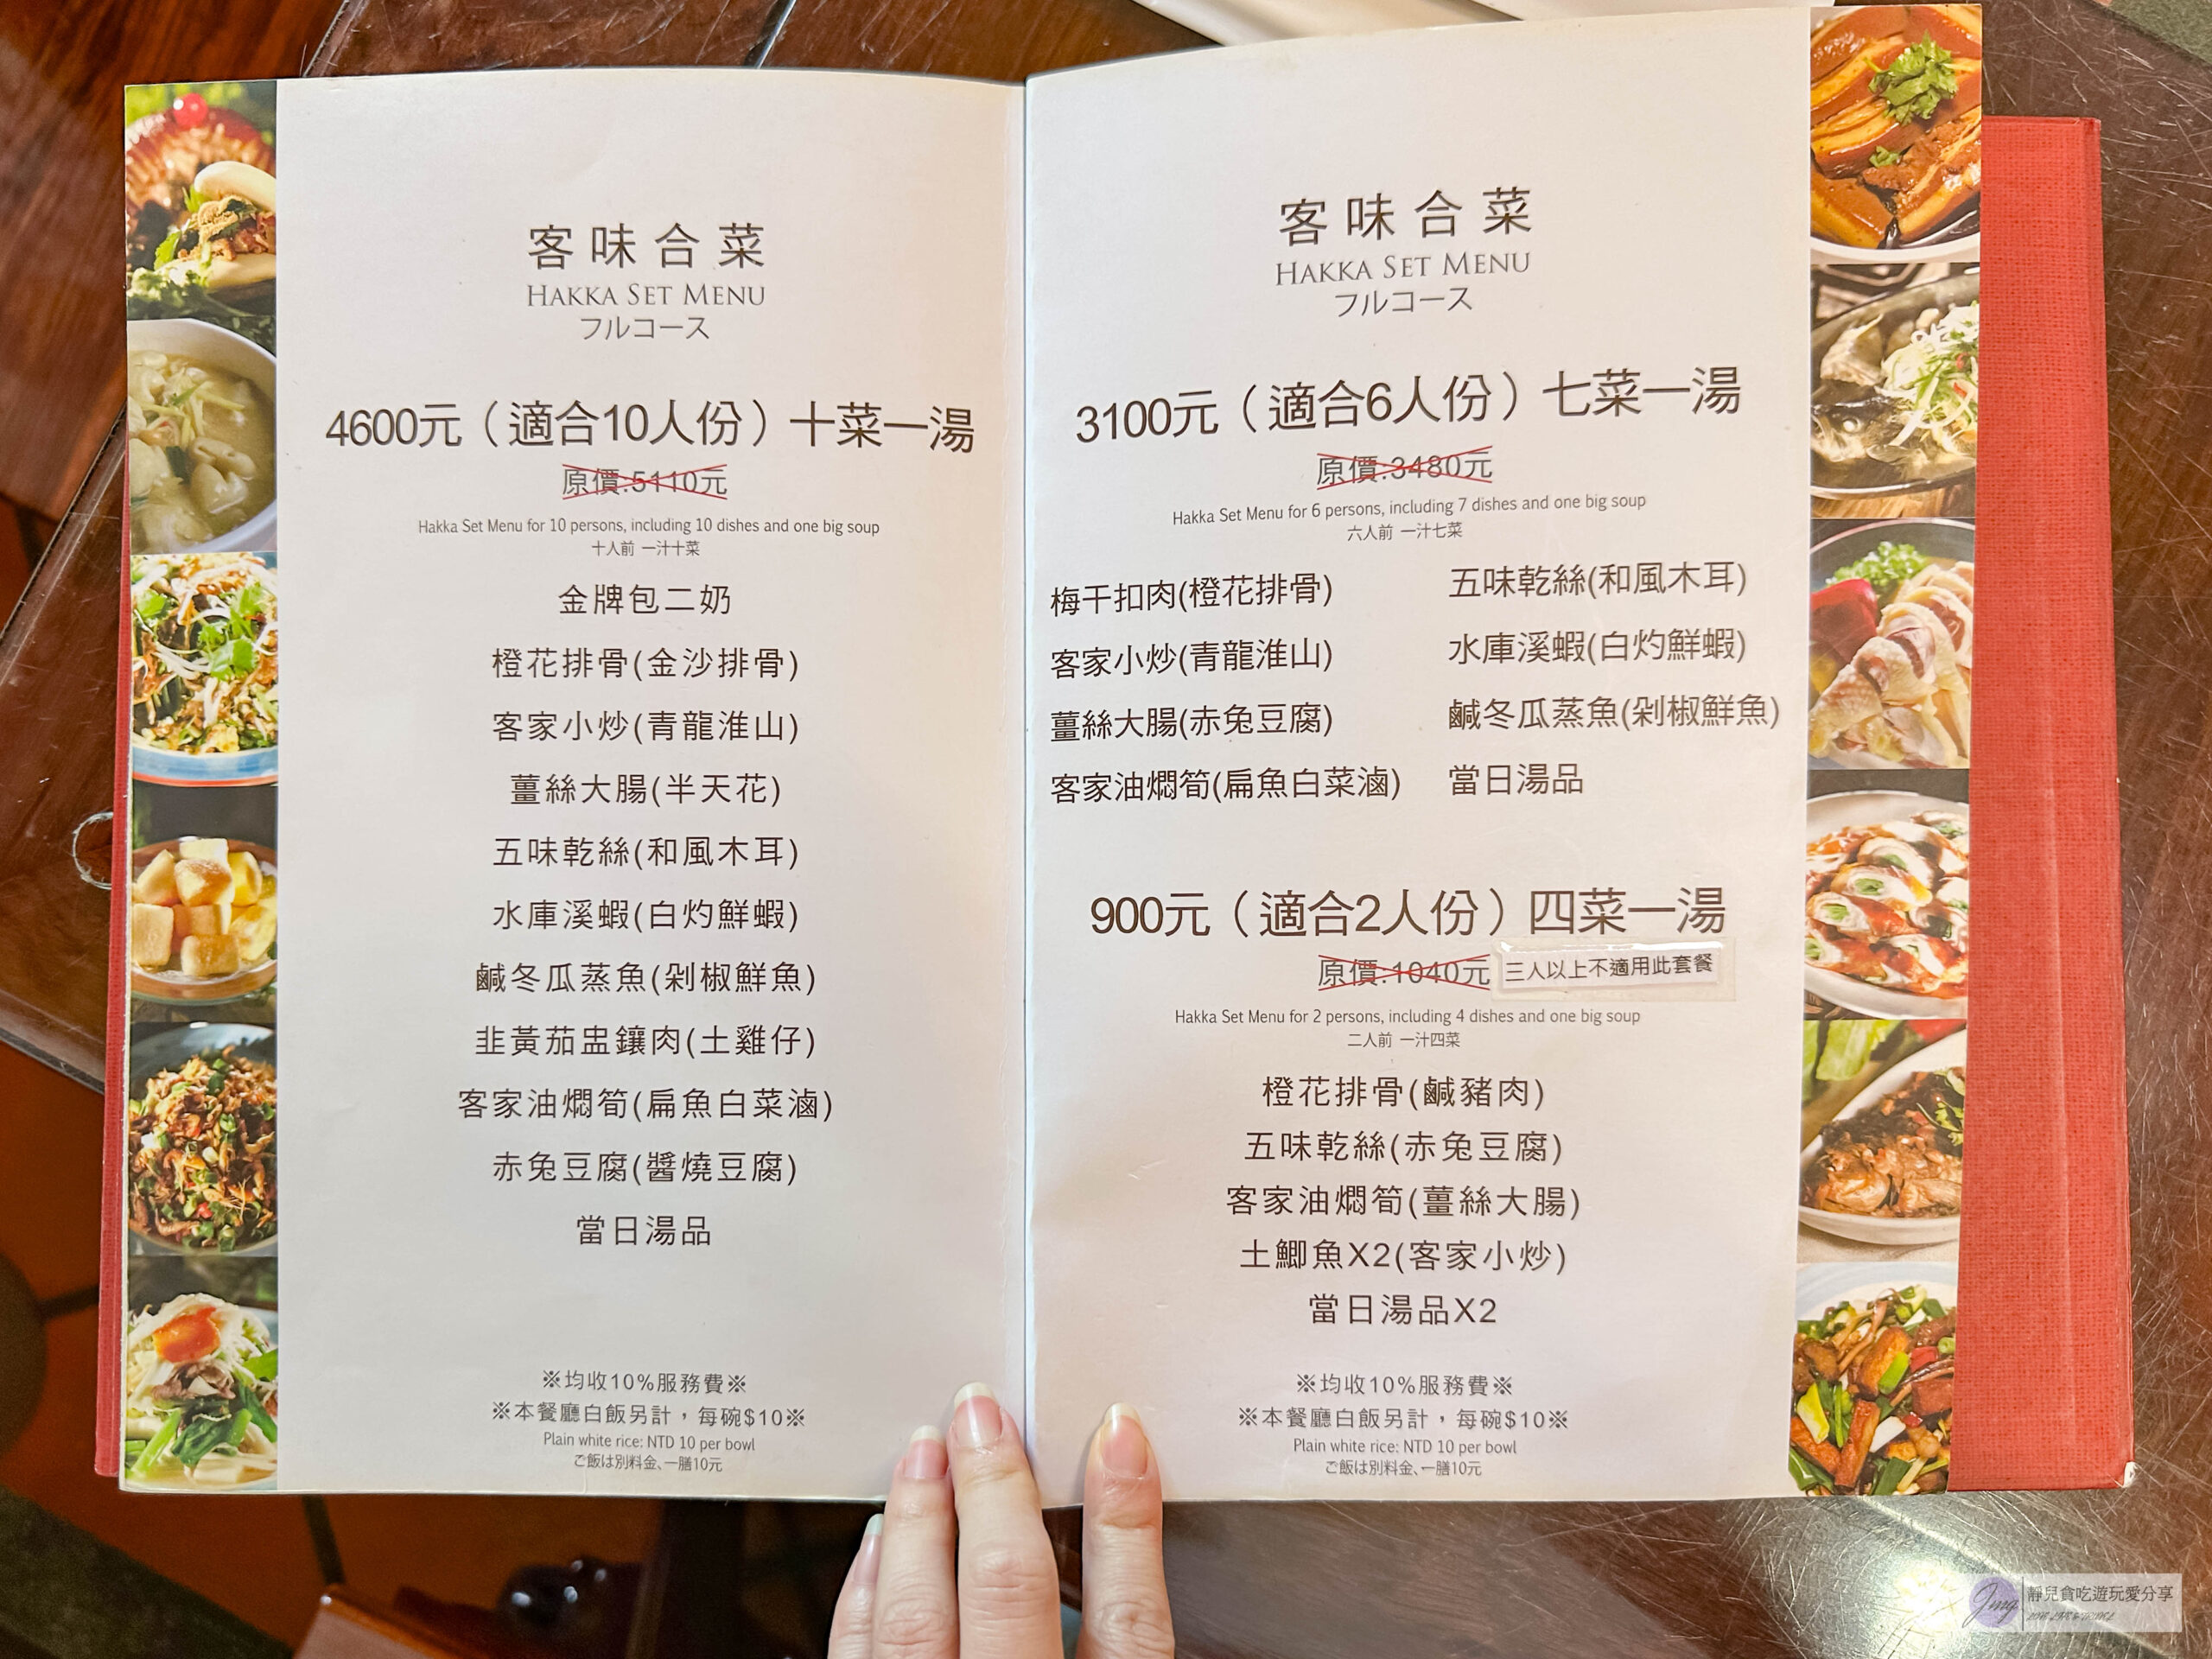 客味合菜
HAKKA SET MENU
フルコース
4600元（適合10人份）十菜一湯
原價:5110元
Hakka Set Menu for 10 persons, including 10 dishes and one big soup
十人前 一汁十菜
金牌包二奶
橙花排骨(金沙排骨)
客家小炒(青龍淮山)
薑絲大腸(半天花)
五味乾絲(和風木耳)
水庫溪蝦(白灼鮮蝦)
鹹冬瓜蒸魚(剁椒鮮魚)
韭黃茄盅鑲肉(土雞仔)
客家油燜筍(扁魚白菜滷)
赤兔豆腐(醬燒豆腐)
當日湯品
※均收10%服務費※
※本餐廳白飯另計，每碗$10※
Plain white rice: NTD 10 per bowl
ご飯は別料金、一膳10元
客味合菜
HAKKA SET MENU
フルコース
3100元（適合6人份）七菜一湯
原價:3480元
Hakka Set Menu for 6 persons, including 7 dishes and one big soup
六人前 一汁七菜
梅干扣肉(橙花排骨)
客家小炒(青龍淮山)
薑絲大腸(赤兔豆腐)
客家油燜筍(扁魚白菜滷)
五味乾絲(和風木耳)
水庫溪蝦(白灼鮮蝦)
鹹冬瓜蒸魚(剁椒鮮魚)
當日湯品
900元（適合2人份）四菜一湯
原價:1040元 三人以上不適用此套餐
Hakka Set Menu for 2 persons, including 4 dishes and one big soup
二人前 一汁四菜
橙花排骨(鹹豬肉)
五味乾絲(赤兔豆腐)
客家油燜筍(薑絲大腸)
土鯽魚X2(客家小炒)
當日湯品X2
※均收10%服務費※
※本餐廳白飯另計，每碗$10※
Plain white rice: NTD 10 per bowl
ご飯は別料金、一膳10元
Jing
靜兒貪吃遊玩愛分享